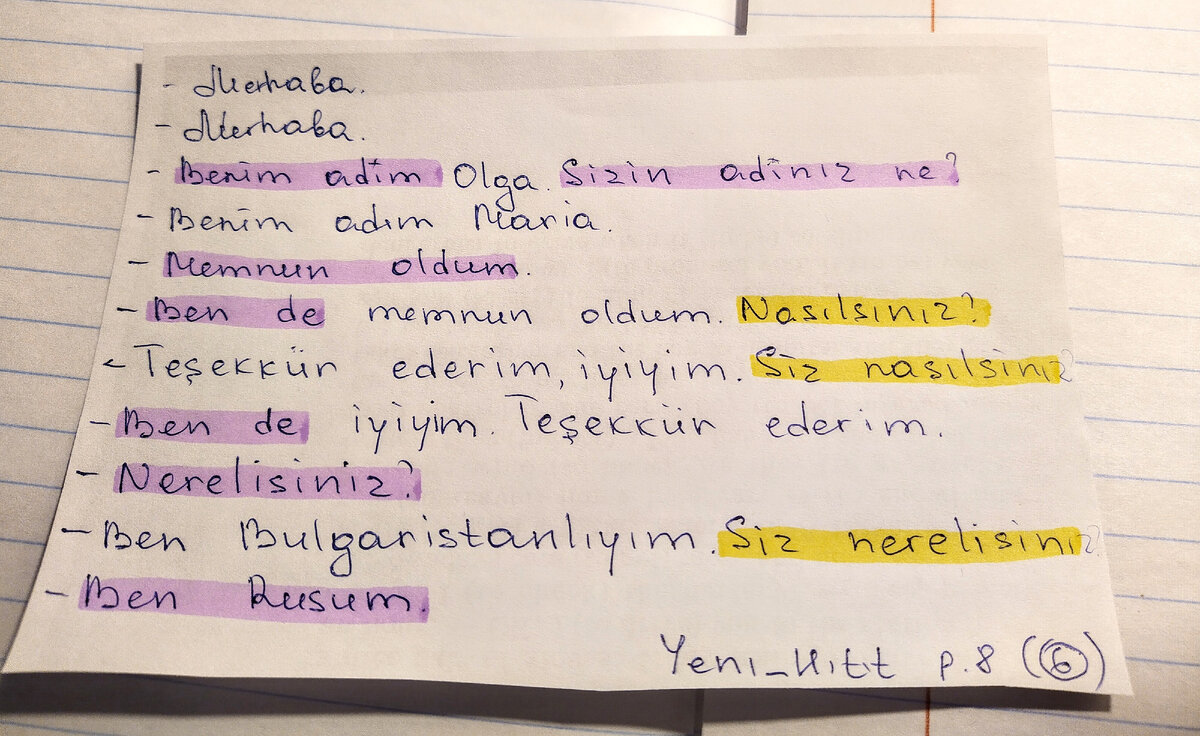 - Merhaba.
- Merhaba.
- Benim adim Olga. Sizin adiniz ne?
- Benim adım Maria.
- Memnun oldum.
- Ben de memnun oldum. Nasılsınız?
- Teşekkür ederim, iyiyim. Siz nasılsiniz?
- Ben de iyiyim. Teşekkür ederim.
- Nerelisiniz?
- Ben Bulgaristanlıyım. Siz nerelisiniz?
- Ben Rusum.
Yeni_Hitt p.8 (6)